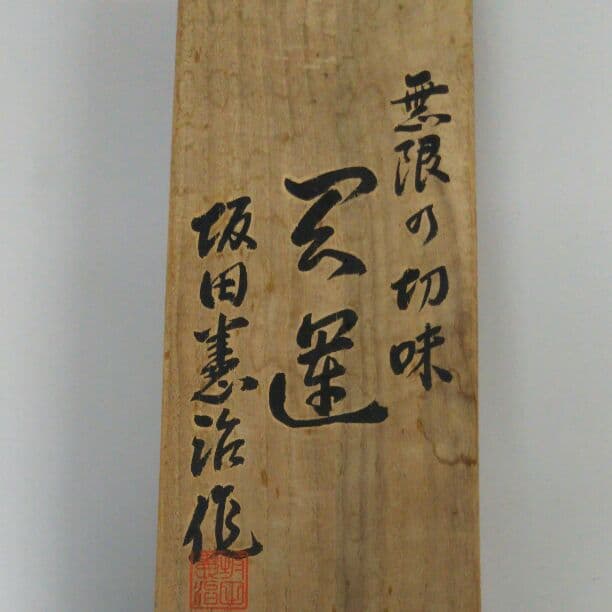 無限の切味
天運
坂田憲治作